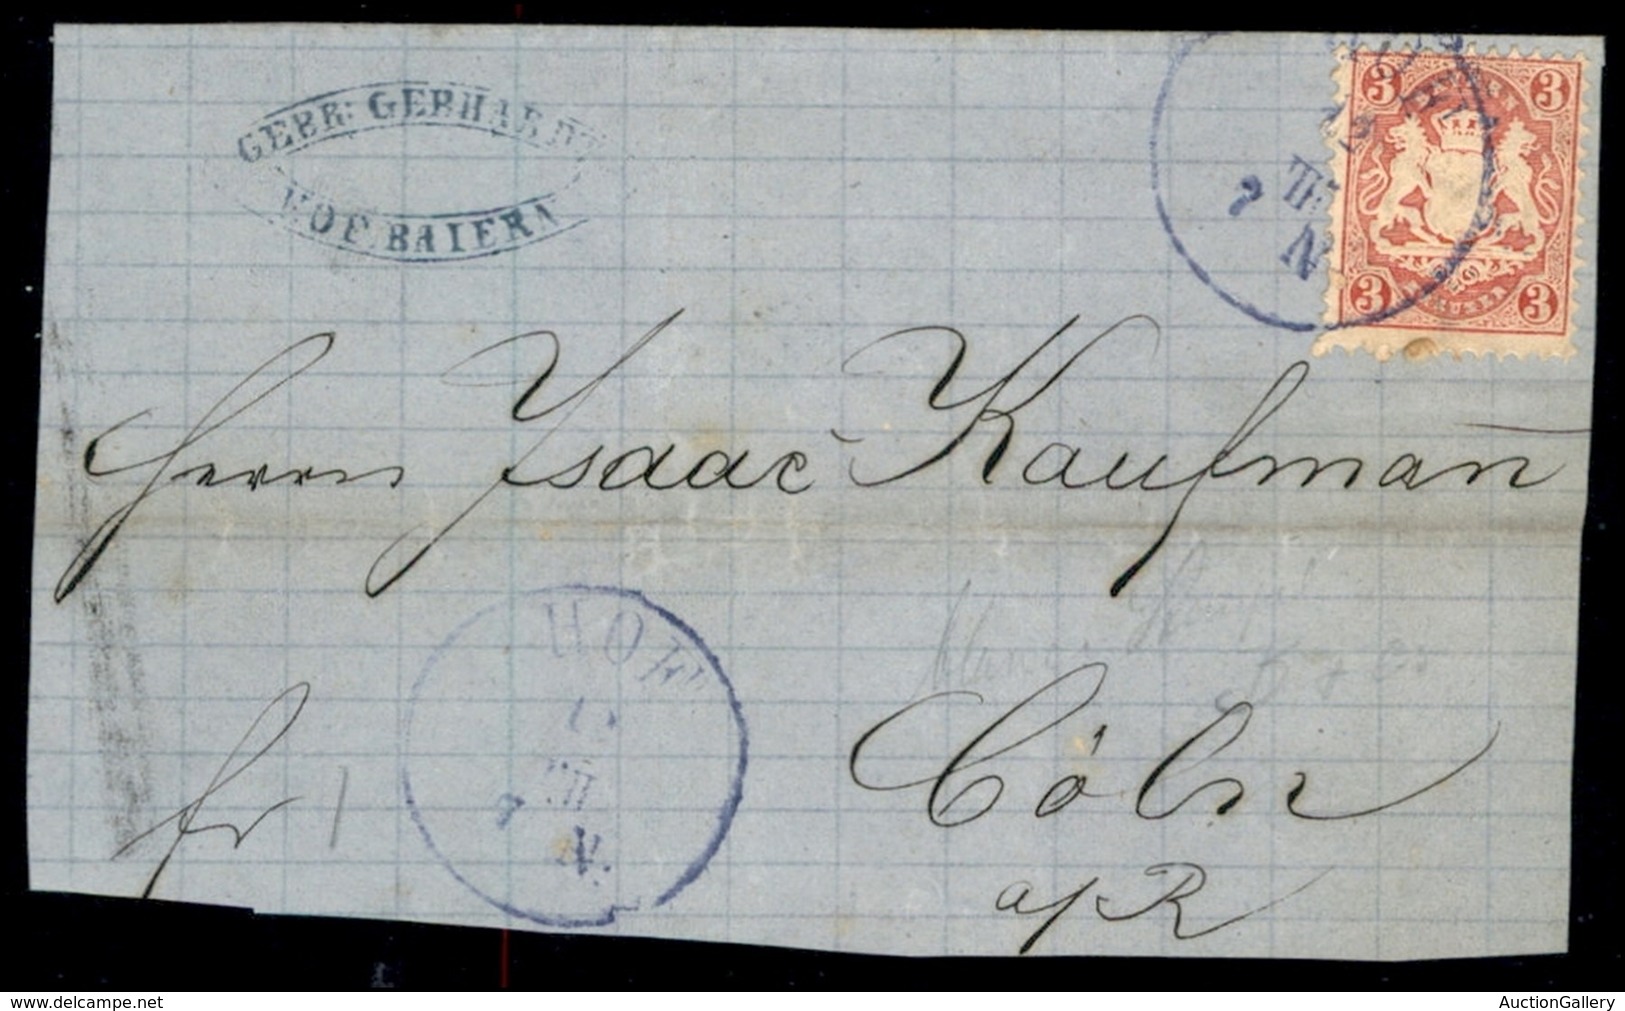 GEBR: GEBHARDT
HOF. BAIERN
3 3
7 III
N.
3 3
Herrn Isaac Kaufman̄
HOF
III
7
N.
Cöln
fr
a/R
www.delcampe.net
AuctionGallery